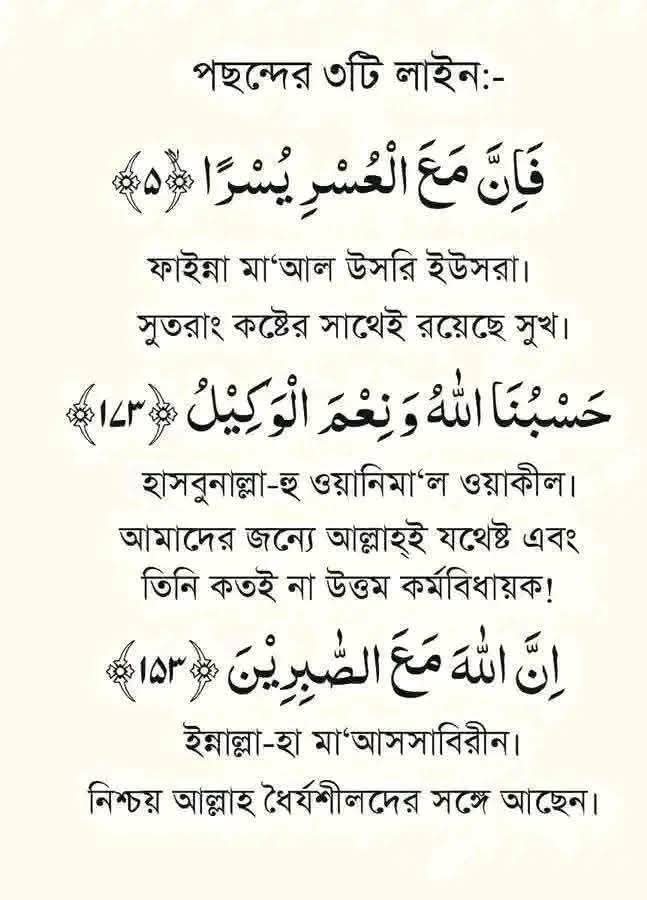 পছন্দের ৩টি লাইন:-
فَاِنَّ مَعَ الْعُسْرِ يُسْرًا ﴿۵﴾
ফাইন্না মা‘আল উসরি ইউসরা।
সুতরাং কষ্টের সাথেই রয়েছে সুখ।
حَسْبُنَا اللّٰهُ وَنِعْمَ الْوَكِيْلُ ﴿۱۷۳﴾
হাসবুনাল্লা-হু ওয়ানিমা‘ল ওয়াকীল।
আমাদের জন্যে আল্লাহ্ই যথেষ্ট এবং
তিনি কতই না উত্তম কর্মবিধায়ক!
اِنَّ اللّٰهَ مَعَ الصّٰبِرِيْنَ ﴿۱۵۳﴾
ইন্নাল্লা-হা মা‘আসসাবিরীন।
নিশ্চয় আল্লাহ ধৈর্যশীলদের সঙ্গে আছেন।